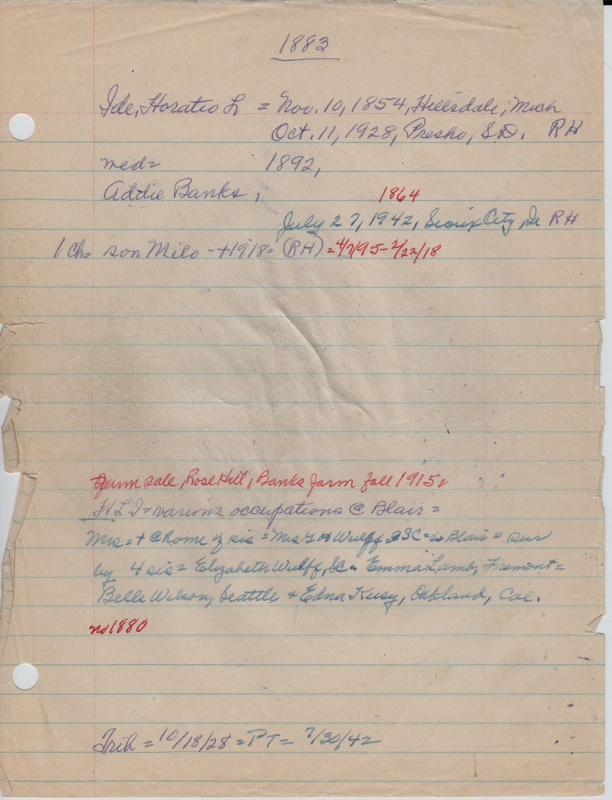 1883
Ide, Horatio L = Nov. 10, 1854, Hillsdale, Mich
Oct. 11, 1928, Presho, S.D. RH
med= 1892,
Addie Banks, 1864
July 27, 1942, Sioux City, Ia RH
1 Ch= son Milo - +1918= (RH) = 4/7/95-2/22/18
Farm sale, Rose Hill, Banks farm fall 1915.
HLI= various occupations @ Blair =
Mrs = + @ home of sis = Mrs G H Wulff SC = Blair = sur
by 4 sis = Elizabeth Wulff, SC - Emma Lamb, Fremont =
Belle Wilson, Seattle + Edna Kusy, Oakland, Cal.
no 1880
Trib = 10/18/28 = PT = 7/30/42